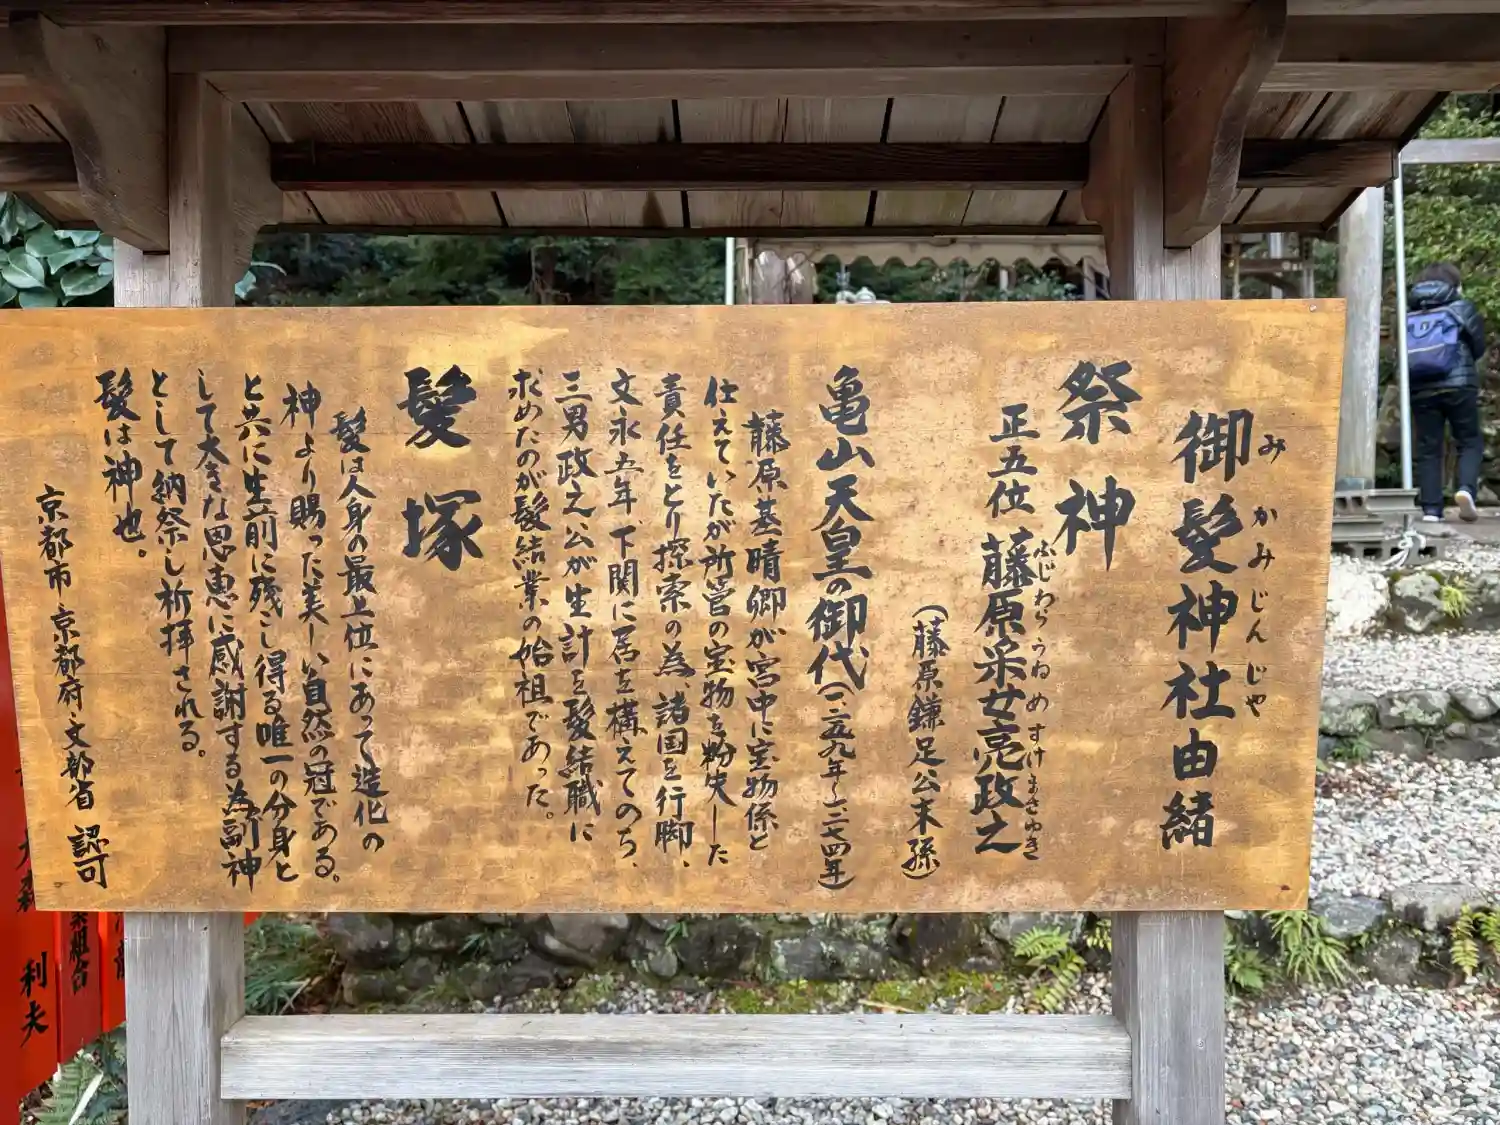 御髪神社由緒
みかみじんじゃ
祭神
正五位 藤原采女亮政之
ふじわらうねめすけまさゆき
(藤原鎌足公末孫)
亀山天皇の御代(一二五九年~一二七四年)
藤原基晴卿が宮中に宝物係と
仕えていたが所管の宝物を紛失した
責任をとり探索の為、諸国を行脚、
文永五年、下関に居を構えてのち、
三男政之公が生計を髪結職に
求めたのが髪結業の始祖であった。
髪塚
髪は人身の最上位にあって造化の
神より賜った美しい自然の冠である。
と共に生前に残し得る唯一の分身と
して大きな恩恵に感謝する為副神
として納祭し祈拝される。
髪は神也。
京都市 京都府 文部省 認可
利夫